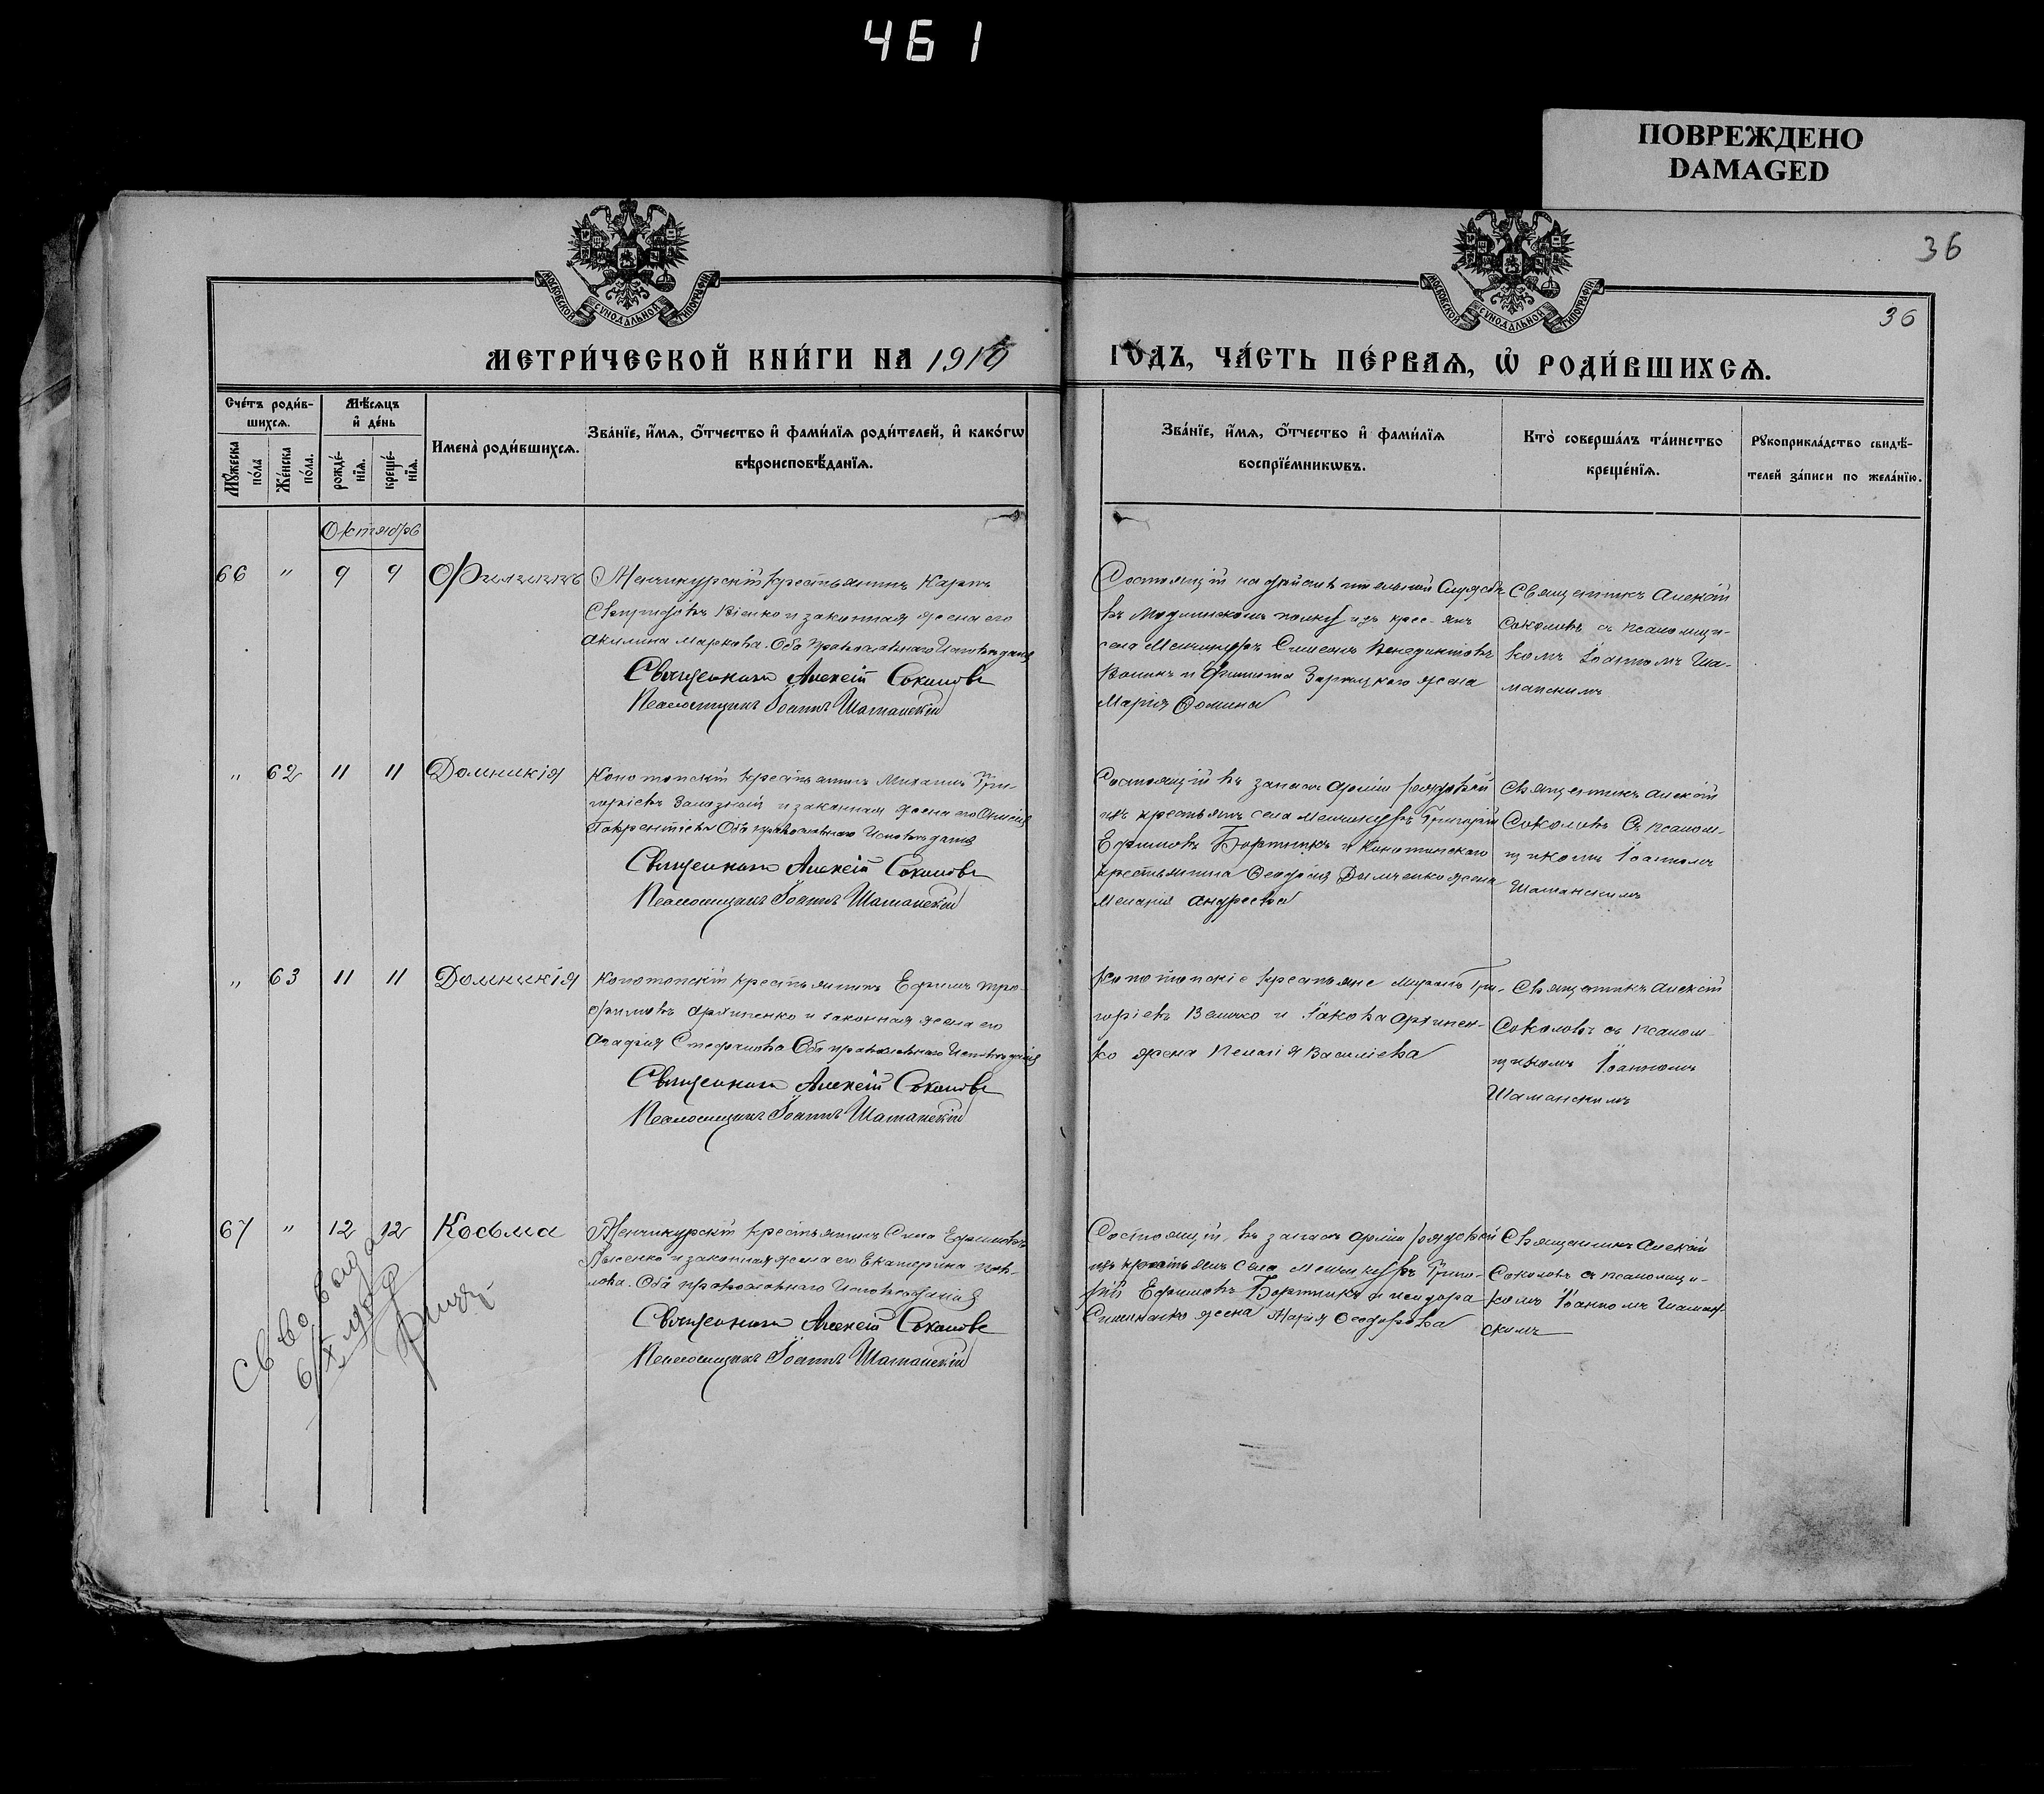 461
ПОВРЕЖДЕНО
DAMAGED
36
36
МОСКОВСКОЙ СѴНОДАЛЬНОЙ ТИПОГРАФІИ
МОСКОВСКОЙ СѴНОДАЛЬНОЙ ТИПОГРАФІИ
МЕТРИ́ЧЕСКОЙ КНИ́ГИ НА 1910
ГО́ДЪ, ЧА́СТЬ ПЕ́РВАѦ, Ѡ҆ РОДИ́ВШИХСѦ.
Сче́тъ роди́в-
шихсѧ.
Мѣ́сѧцъ
и҆ де́нь
Мꙋ́жеска
по́ла
Же́нска
по́ла.
рожде́-
нїѧ.
креще́-
нїѧ.
Имена̀ роди́вшихсѧ.
Зва́нїе, и҆́мѧ, ѻ҆́тчество и҆ фами́лїѧ роди́телей, и҆ како́гѡ
вѣроисповѣ́данїѧ.
Зва́нїе, и҆́мѧ, ѻ҆́тчество и҆ фами́лїѧ
воспрїе́мникѡвъ.
Кто̀ соверша́лъ та́инство
креще́нїѧ.
Рꙋкоприкла́дство свидѣ́-
телей за́писи по жела́нїю.
Октябрь
66 " 9 9 Филиппъ
Менчикурскій крестьянинъ Карпъ
Свиридовъ Кіенко и законная жена его
Акилина Маркова. Оба православнаго исповѣданія
Священникъ Алексій Соколовъ
Псаломщикъ Іоаннъ Шаманскій
Состоящій на дѣйствительной службѣ
въ Модлинскомъ полку изъ крес-янъ
села Менчикуръ Симеонъ Венедиктовъ
жена
Марія Фомина
Священникъ Алексій
Соколовъ съ псаломщи-
комъ Іоанномъ Ша-
манскимъ
" 62 11 11 Домникія
Конотопскій крестьянинъ Михаилъ Гри-
горіевъ и законная жена его
Оба православнаго исповѣданія
Священникъ Алексій Соколовъ
Псаломщикъ Іоаннъ Шаманскій
Состоящій въ запасѣ арміи рядовой
изъ крестьянъ села Менчикуръ Григорій
Ефимовъ Бортникъ и Конотопскаго
крестьянина Ѳеодосія Дымченко жена
Меланія Андреева
Священникъ Алексій
Соколовъ съ псалом-
щикомъ Іоанномъ
Шаманскимъ
" 63 11 11 Домникія
Конотопскій крестьянинъ Ефимъ Тро-
фимовъ Архипенко и законная жена его
Агафія Стефанова Оба православнаго исповѣданія
Священникъ Алексій Соколовъ
Псаломщикъ Іоаннъ Шаманскій
Конотопскіе крестьяне Гри-
горіевъ Величко и Іакова Архипен-
ко жена Пелагія Василіева
Священникъ Алексій
Соколовъ съ псалом-
щикомъ Іоанномъ
Шаманскимъ
67 " 12 12 Косьма
Менчикурскій крестьянинъ Сила Ефимовъ
Лысенко и законная жена его Екатерина Пав-
лова. Оба православнаго исповѣданія
Священникъ Алексій Соколовъ
Псаломщикъ Іоаннъ Шаманскій
Состоящій въ запасѣ арміи рядовой
изъ крестьянъ села Менчикуръ Григо-
рій Ефимовъ Бортникъ и Исидора
жена Марія Ѳеодорова
Священникъ Алексій
Соколовъ съ псаломщи-
комъ Іоанномъ Шаман-
скимъ